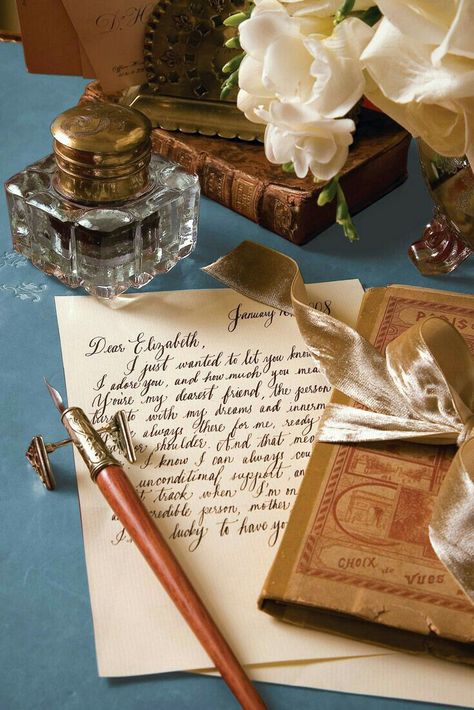 January 10, 08
Dear Elizabeth,
I just wanted to let you know
I adore you, and how much you mea
You're my dearest friend, the person
with my dreams and innerm
always there for me, ready
shoulder. And that me
I know I can always cou
unconditional support, an
t track when I'm on
credible person, mother
I lucky to have you
PARIS
CHOIX de VUES